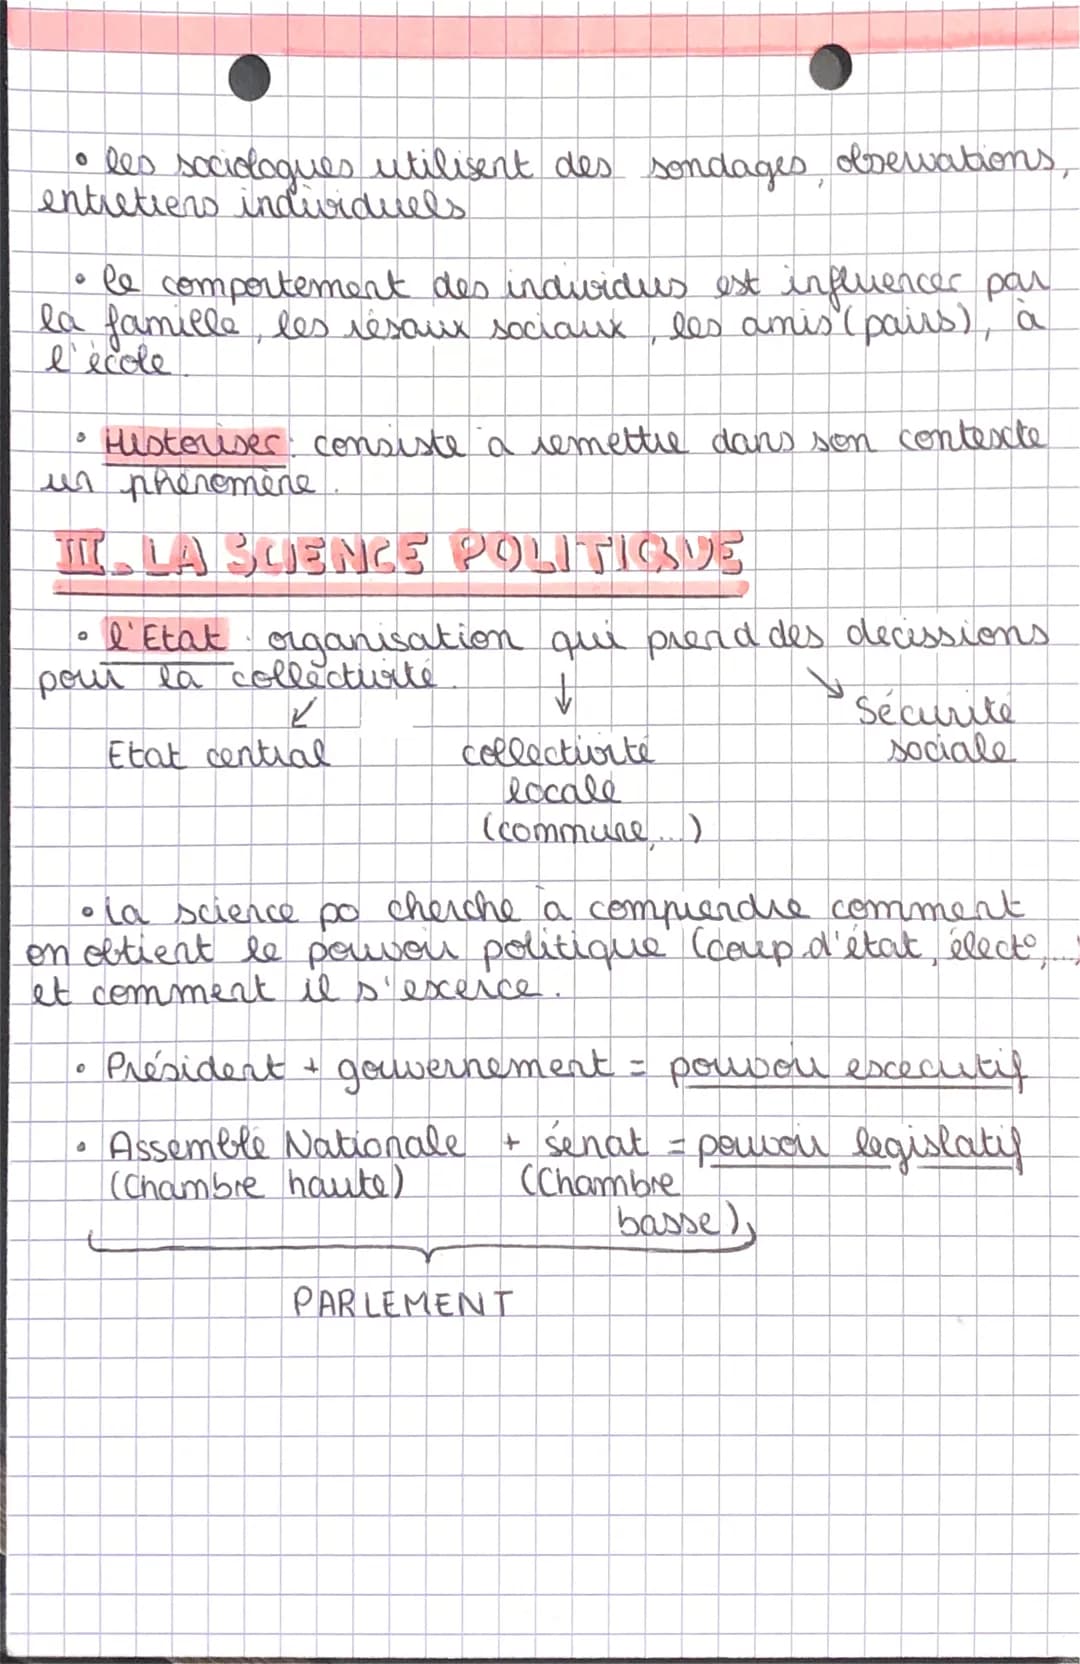 • les sociologues utilisent des sondages, observations,
entretiens individuels
• le comportement des individus est influencer par
la famille, les résaux sociaux, les amis (pairs), à
l'école.
• Historiser : consiste à remettre dans son contexte
un phénomène.
III. LA SCIENCE POLITIQUE
• l'Etat : organisation qui prend des decissions
pour la collectivité.
↙ ↓ ↘ Sécurité
Etat central collectivité sociale
locale
(commune,...)
• la science po cherche à comprendre comment
on obtient le pouvoir politique (coup d'état, électº,...)
et comment il s'exerce.
• Président + gouvernement = pouvoir executif
• Assemblé Nationale + sénat = pouvoir legislatif
(Chambre haute) (Chambre
basse)
PARLEMENT